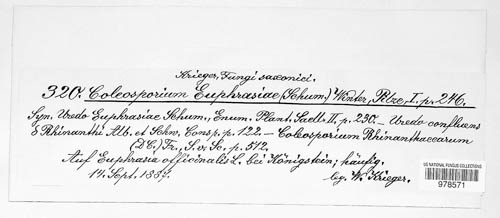 Krieger, Fungi saxonici.
320. Coleosporium Euphrasiae (Schum.) Winter, Pilze, I. p. 246.
Syn. Uredo Euphrasiae Schum., Enum. Plant. Saell. II, p. 230. — Uredo confluens
δ Rhinanthi Alb. et Schw. Consp. p. 122. — Coleosporium Rhinanthacearum
(DC.) Fr., S. v. Sc., p. 512.
Auf Euphrasia officinalis L. bei Königstein; häufig.
14. Sept. 1887. leg. W. Krieger.
US NATIONAL FUNGUS COLLECTIONS
978571